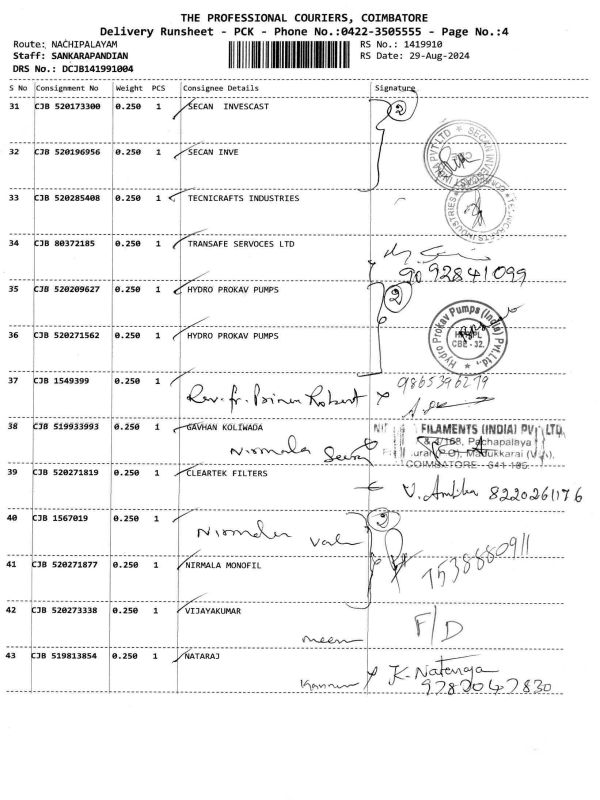 THE PROFESSIONAL COURIERS, COIMBATORE
Delivery Runsheet - PCK - Phone No.:0422-3505555 - Page No.:4
Route: NACHIPALAYAM RS No.: 1419910
Staff: SANKARAPANDIAN RS Date: 29-Aug-2024
DRS No.: DCJB141991004
S No Consignment No Weight PCS Consignee Details Signature
31 CJB 520173300 0.250 1 SECAN INVESCAST 2
32 CJB 520196956 0.250 1 SECAN INVE
33 CJB 520285408 0.250 1 TECNICRAFTS INDUSTRIES
34 CJB 80372185 0.250 1 TRANSAFE SERVOCES LTD
9092841099
35 CJB 520209627 0.250 1 HYDRO PROKAV PUMPS 2
36 CJB 520271562 0.250 1 HYDRO PROKAV PUMPS
Hydro Prokav Pumps (India) Pvt.Ltd.,
CBE - 32.
37 CJB 1549399 0.250 1 9865396279
Rev. fr. Robert
38 CJB 519933993 0.250 1 GAVHAN KOLIWADA
FILAMENTS (INDIA) PVT LTD.
Pachapalaya
Madukkarai
COIMBATORE - 641 105.
Nirmala
39 CJB 520271819 0.250 1 CLEARTEK FILTERS
V. Ambika 8220261176
40 CJB 1567019 0.250 1 2
Nirmala
41 CJB 520271877 0.250 1 NIRMALA MONOFIL 7538880911
42 CJB 520273338 0.250 1 VIJAYAKUMAR F/D
43 CJB 519813854 0.250 1 NATARAJ K. Nataraja